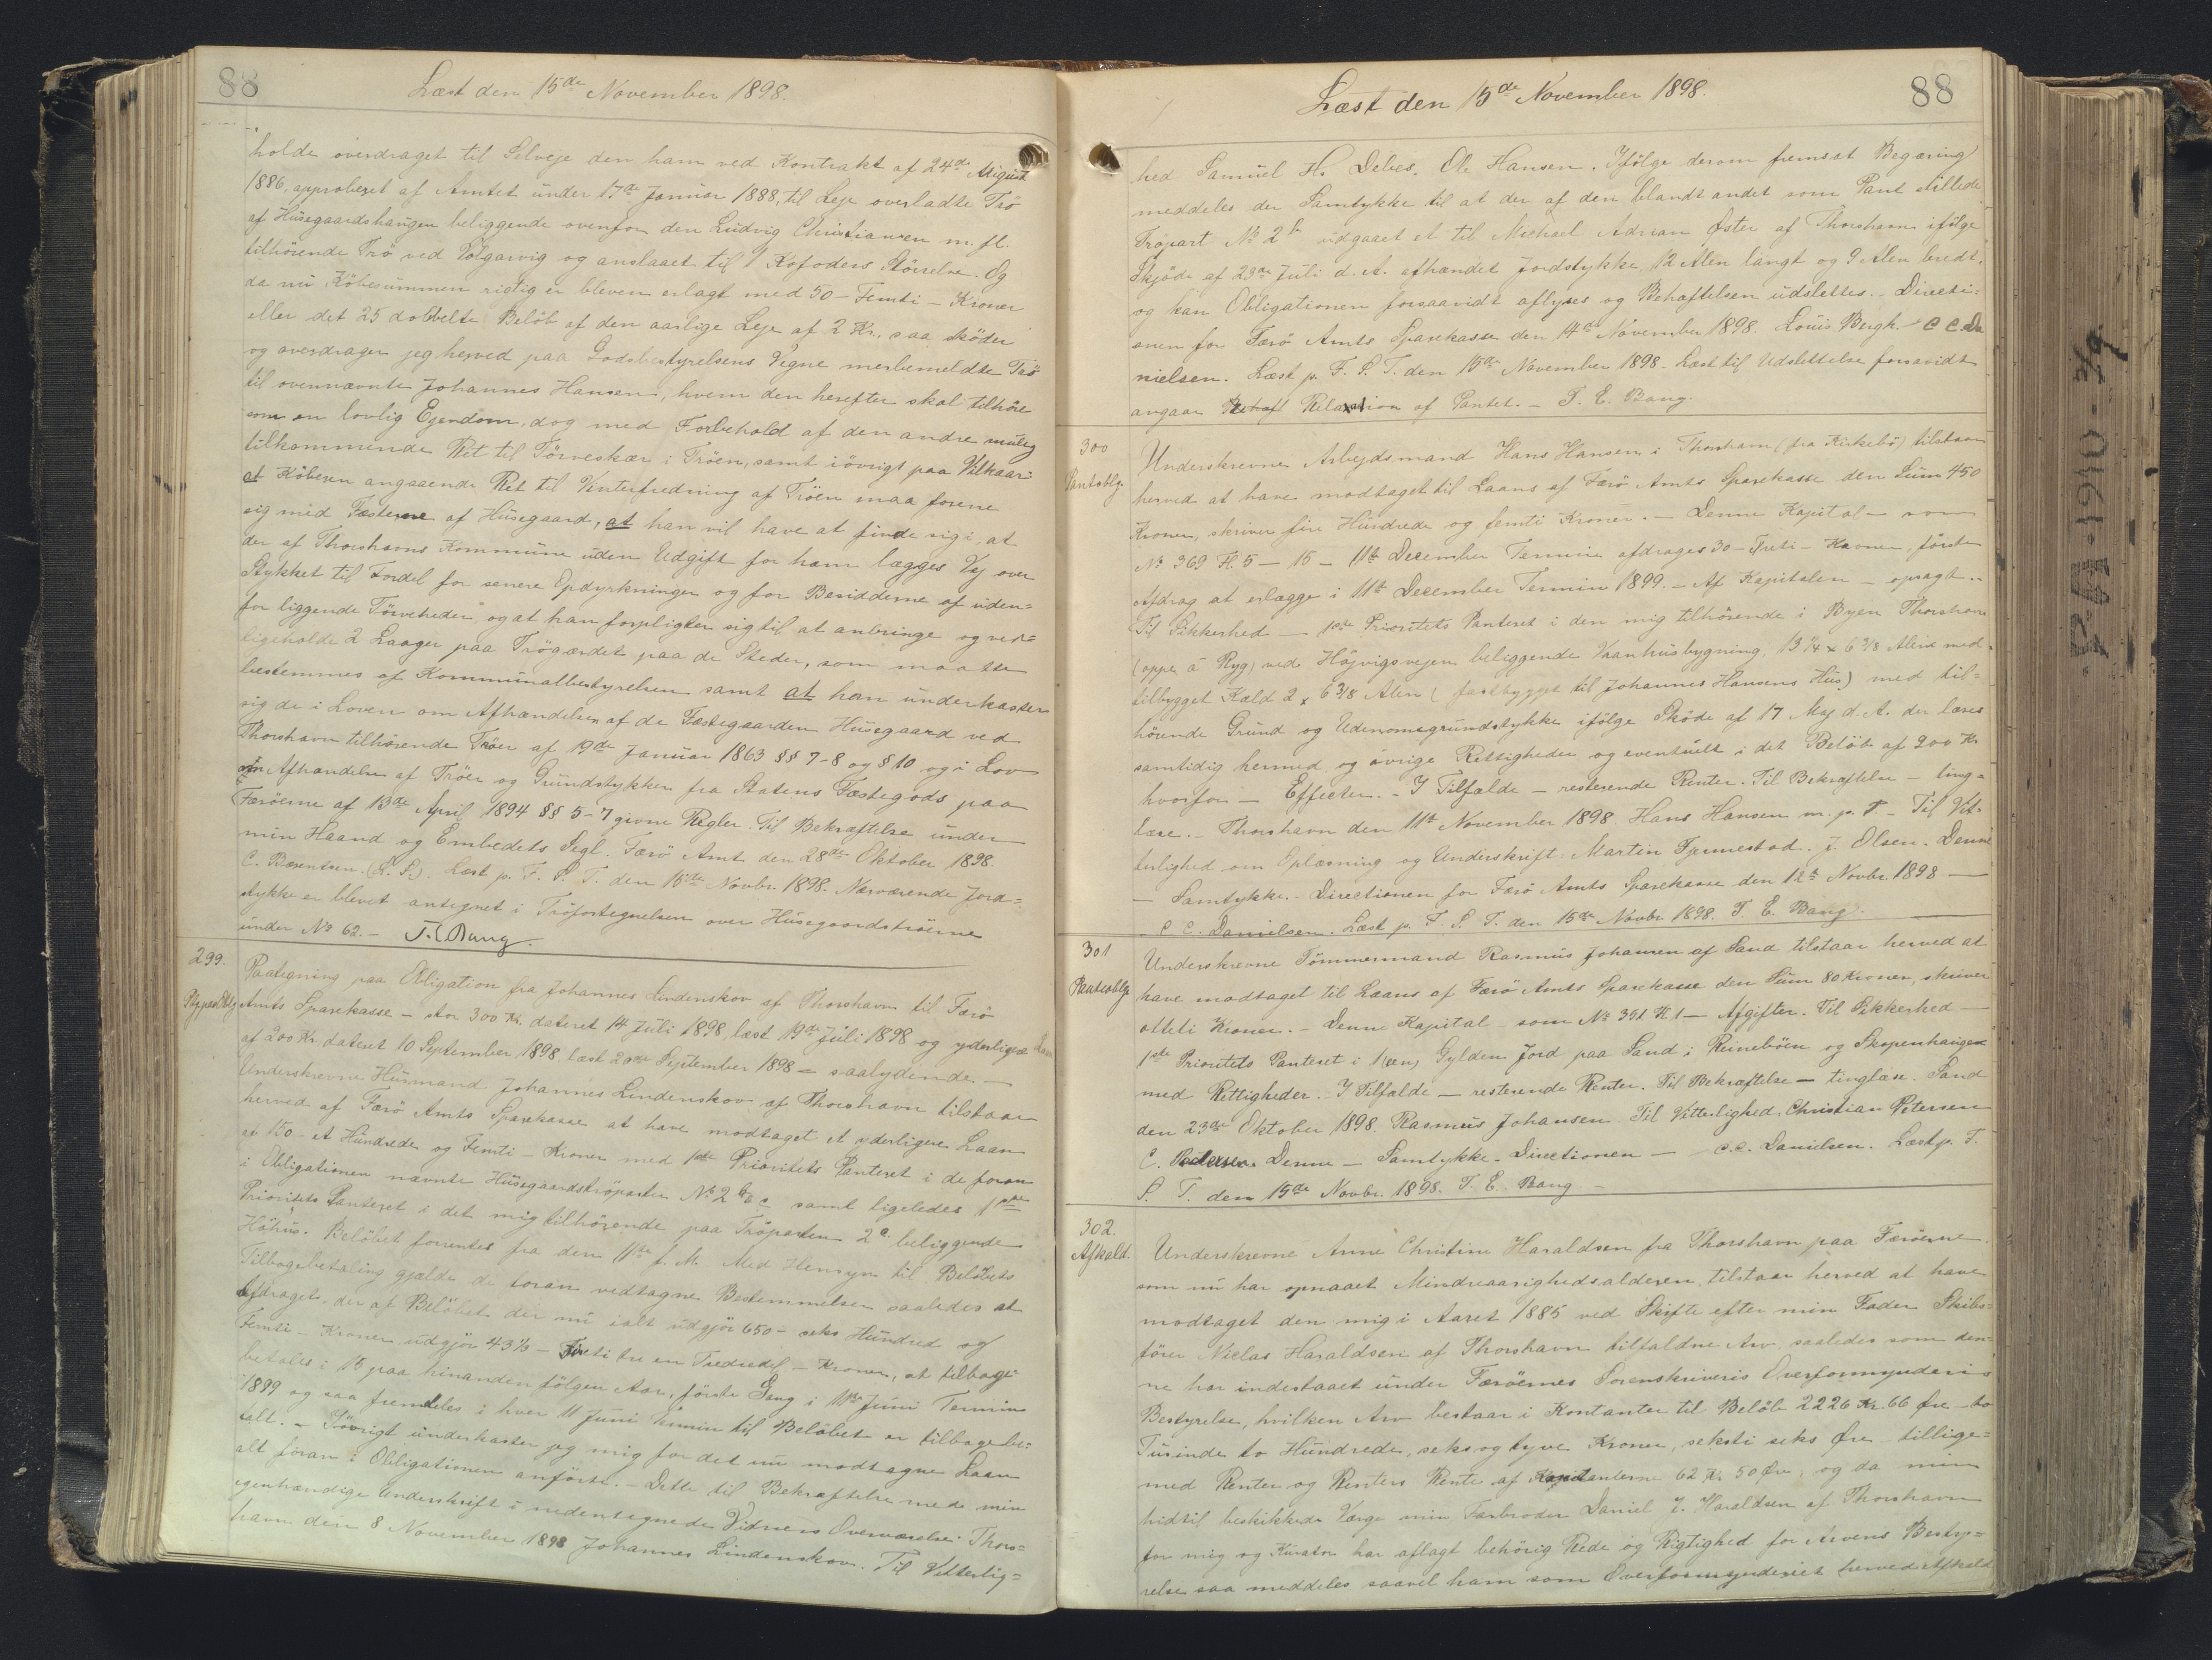 88
Læst den 15de November 1898.
holde overdraget til Selveje den ham ved Kontrakt af 24de August
1886, approberet af Amtet under 17de Januar 1888, til Leje overladte Trö
af Husegaardshaugen beliggende ovenfor den Ludvig Christiansen m. fl.
tilhörende Trö ved og anslaaet til 1 Kofoders Störrelse. Og
da nu Köbesummen rigtig er bleven erlagt med 50 - Femti - Kroner
eller det 25 dobbelte Belöb af den aarlige Leje af 2 Kr., saa sköder
og overdrager jeg herved paa Godsbestyrelsens Vegne merbemeldte Trö
til ovennævnte Johannes Hansen, hvem den herefter skal tilhöre
som en lovlig Ejendom, dog med Forbehold af den andre mulig
tilkommende Ret til Törveskær i Tröen, samt iövrigt paa Vilkaar:
at Köberen angaaende Ret til Vinterfredning af Tröen maa forene
sig med Fæsterne af Husegaard, at han vil have at finde sig i, at
der af Thorshavns Kommune uden Udgift for ham lægges Vej over
Stykket til Fordel for senere Opdyrkninger og for Besidderne af uden=
for liggende Törveheder, og at han forpligter sig til at anbringe og ved=
ligeholde 2 Laager paa Trögærdet paa de Steder, som maatte
bestemmes af Kommunalbestyrelsen samt at han underkaster
sig de i Loven om Afhændelsen af de Fæstegaarden Husegaard ved
Thorshavn tilhörende Tröer af 19de Januar 1863 §§ 7-8 og § 10 og i Lov
om Afhændelse af Tröer og Grundstykker fra Statens Fæstegods paa
Færöerne af 13de April 1894 §§ 5-7 givne Regler. Til Bekræftelse under
min Haand og Embedets Segl. Færö Amt den 28de Oktober 1898.
C. Bærentsen. (L. S.). Læst p. F. S. T. den 15de Novbr. 1898. Nærværende Jord=
stykke er blevet antegnet i Tröfortegnelsen over Husegaardströerne
under No 62. - T. E. Bang.
299.
Paategning paa Obligation fra Johannes Lindenskov af Thorshavn til Færö
Amts Sparekasse - stor 300 Kr, dateret 14 Juli 1898, læst 19de Juli 1898 og yderligere Laan
af 200 Kr. dateret 10 September 1898 læst 20de September 1898 - saalydende. -
Underskrevne Husmand Johannes Lindenskov af Thorshavn tilstaar
herved af Færö Amts Sparekasse at have modtaget et yderligere Laan
af 150 - et Hundrede og Femti - Kroner med 1ste Prioritets Panteret i de foran
i Obligationen nævnte Husegaardströparter No 2 b & c samt ligeledes 1ste
Prioritets Panteret i det mig tilhörende paa Tröparten 2 c beliggende
Höhus. Belöbet forrentes fra den 11te f. M. Med Hensyn til Belöbets
Tilbagebetaling gjælde de foran vedtagne Bestemmelser saaledes at
Afdraget, der af Belöbet der nu ialt udgjör 650 - seks Hundred og
Femti - Kroner udgjör 43 1/3 - Firti tre en Trediedel - Kroner, at tilbage=
betales i 15 paa hinanden fölgen Aar, förste Gang i 11te Juni Termin
1899 og saa fremdeles i hver 11 Juni Termin til Belöbet er tilbagebe=
talt. - Iövrigt underkaster jeg mig for det nu modtagne Laan
alt foran i Obligationen anförte. - Dette til Bekræftelse med min
egenhændige Underskrift i nedentegnede Vidners Overværelse. Thors=
havn den 8 November 1898 Johannes Lindenskov. Til Vitterlig=
88
Læst den 15de November 1898.
hed Samuel H. Debes. Ole Hansen. Ifölge derom fremsat Begæring
meddeles der Samtykke til at der af den blandt andet som Pant stillede
Tröpart No 2 b udgaaet et til Michael Adrian Öster af Thorshavn ifölge
Skjöde af 29de Juli d. A. afhændet Jordstykke, 12 Alen langt og 9 Alen bredt,
og kan Obligationen forsaavidt aflyses og Behæftelsen udslettes. - Directi=
onen for Færö Amts Sparekasse den 14de November 1898. Louis Bergh. - C C. Da
nielsen. Læst p. F. S. T. den 15de November 1898. Læst til Udslettelse forsavidt
angaar Relaxation af Pantet. - T. E. Bang.
300
Pantoblg.
Underskrevne Arbejdsmand Hans Hansen i Thorshavn (fra Kirkebö) tilstaar
herved at have modtaget til Laans af Færö Amts Sparekasse den Sum 450
Kroner, skriver fire Hundrede og femti Kroner. - Denne Kapital - som
No 369 H. 5 - 15 - 11te December Termin afdrages 30 - Treti - Kroner, förste
Afdrag at erlægge i 11te December Termin 1899. - Af Kapitalen - opsagt. -
Til Sikkerhed - 1ste Prioritets Panteret i den mig tilhörende i Byen Thorshavn
(oppe á Ryg) ved Höjvigsvejen beliggende Vaanhusbygning, 13 1/4 x 6 3/8 Alen med
tilbygget Kald 2 x 6 3/8 Alen (fastbygget til Johannes Hansens Hus) med til=
hörende Grund og Udenomsgrundstykke ifölge Sköde af 17 Maj d. A. der læses
samtidig hermed og övrige Rettigheder og eventuelt i det Belöb af 900 Kr.
hvorfor - Effecter. - I Tilfælde - resterende Renter. Til Bekræftelse - ting=
læse. - Thorshavn den 11te November 1898 Hans Hansen m. p. P. - Til Vit=
terlighed om Oplæsning og Underskrift: Martin Tjennestad. J. Olsen. Denne
- Samtykke. - Directionen for Færö Amts Sparekasse den 12te Novbr. 1898 -
C C. Danielsen. Læst p. F. S. T. den 15de Novbr 1898. T. E. Bang.
301
Panteoblg.
Underskrevne Tömmermand Rasmus Johansen af Sand tilstaar herved at
have modtaget til Laans af Færö Amts Sparekasse den Sum 80 Kroner, skriver
otteti Kroner. - Denne Kapital - som No 351 H. 1 - Afgifter. Til Sikkerhed -
1ste Prioritets Panteret i 1 (en) Gylden Jord paa Sand i Reineböen og Skopenhaugen
med Rettigheder. - I Tilfælde - resterende Renter. Til Bekræftelse - tinglæse. Sand
den 23de Oktober 1898. Rasmus Johansen. Til Vitterlighed. Christian Petersen
C. Pedersen. Denne - Samtykke. Directionen - C. C. Danielsen. Læst p. F.
S. T. den 15de Novbr. 1898. T. E. Bang -
302.
Afkald.
Underskrevne Anne Christine Haraldsen fra Thorshavn paa Færöerne
som nu har opnaaet Mindreaarighedsalderen, tilstaar herved at have
modtaget den mig i Aaret 1885 ved Skifte efter min Fader Skibs=
förer Niclas Haraldsen af Thorshavn tilfaldne Arv, saaledes som den=
ne har indestaaet under Færöernes Sorenskriveris Overformynderis
Bestyrelse, hvilken Arv bestaar i Kontanter til Belöb 2226 Kr. 66 Öre - to
Tusinde to Hundrede, seks og tyve Kroner, seksti seks Öre - tillige=
med Renter og Renters Rente af Kontanterne 62 Kr. 50 Öre, og da min
hidtil beskikkede Værge min Farbroder Daniel J. Haraldsen af Thorshavn
for mig og Kurator har aflagt behörig Rede og Rigtighed for Arvens Besty=
relse saa meddeles saavel ham som Overformynderiet herved Afkald